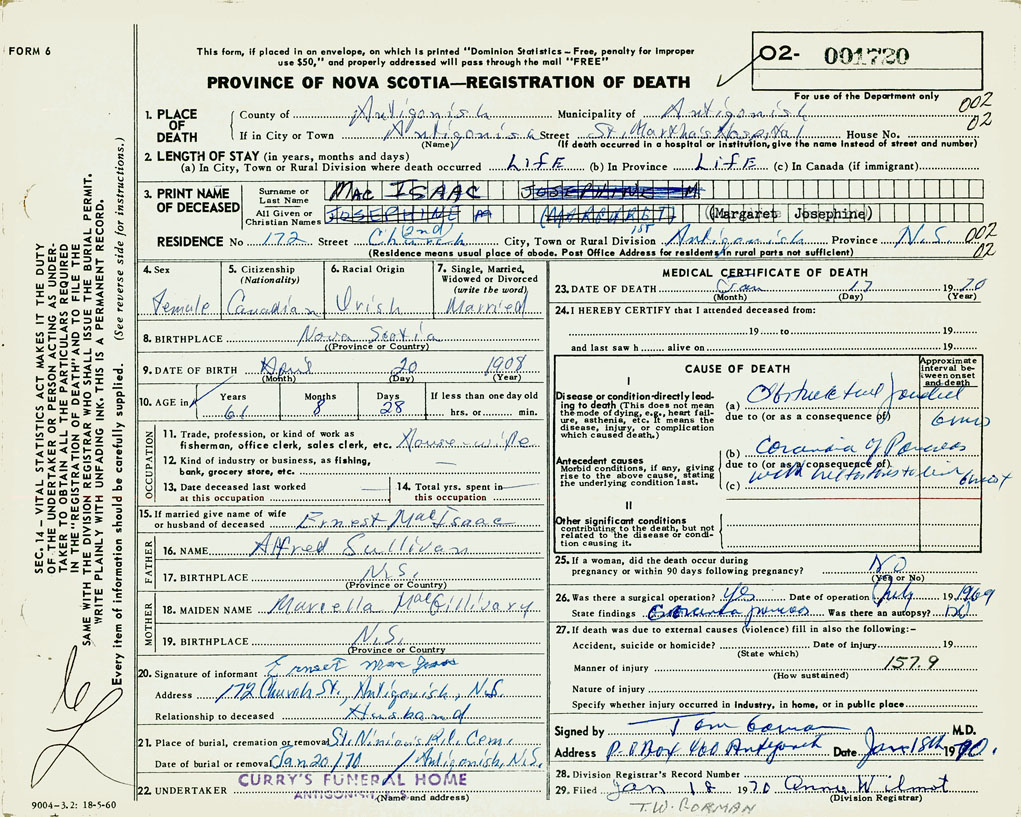 FORM 6
This form, if placed in an envelope, on which is printed "Dominion Statistics – Free, penalty for improper
use $50," and properly addressed will pass through the mail "FREE"
PROVINCE OF NOVA SCOTIA—REGISTRATION OF DEATH
02- 001720
For use of the Department only
002
02
1. PLACE OF DEATH
County of Antigonish Municipality of Antigonish
If in City or Town Antigonish Street St. Martha's Hospital House No.
(Name) (If death occurred in a hospital or institution, give the name instead of street and number)
2. LENGTH OF STAY (in years, months and days)
(a) In City, Town or Rural Division where death occurred LIFE (b) In Province LIFE (c) In Canada (if immigrant)
3. PRINT NAME OF DECEASED
Surname or Last Name MAC ISAAC JOSEPHINE M
All Given or Christian Names JOSEPHINE (MARGARET) (Margaret Josephine)
2nd 1st
RESIDENCE No 172 Street Church City, Town or Rural Division Antigonish Province N.S. 002
02
(Residence means usual place of abode. Post Office Address for residents in rural parts not sufficient)
4. Sex Female
5. Citizenship (Nationality) Canadian
6. Racial Origin Irish
7. Single, Married, Widowed or Divorced (write the word) Married
8. BIRTHPLACE Nova Scotia
(Province or Country)
9. DATE OF BIRTH April 20 1908
(Month) (Day) (Year)
10. AGE in Years 61 Months 8 Days 28 If less than one day old hrs. or min.
OCCUPATION
11. Trade, profession, or kind of work as fisherman, office clerk, sales clerk, etc. House-wife
12. Kind of industry or business, as fishing, bank, grocery store, etc. —
13. Date deceased last worked at this occupation
14. Total yrs. spent in this occupation
15. If married give name of wife or husband of deceased Ernest MacIsaac
FATHER
16. NAME Alfred Sullivan
17. BIRTHPLACE N.S.
(Province or Country)
MOTHER
18. MAIDEN NAME Mariella MacGillivary
19. BIRTHPLACE N.S.
(Province or Country
20. Signature of informant Ernest MacIsaac
Address 172 Church St., Antigonish, N.S.
Relationship to deceased Husband
21. Place of burial, cremation or removal St. Ninian's Cem.
Date of burial or removal Jan 20/70 Antigonish, N.S.
22. UNDERTAKER CURRY'S FUNERAL HOME
ANTIGONISH, N.S.
(Name and address)
MEDICAL CERTIFICATE OF DEATH
23. DATE OF DEATH Jan 17 1970
(Month) (Day) (Year)
24. I HEREBY CERTIFY that I attended deceased from:
19 to 19
and last saw h alive on 19
CAUSE OF DEATH
Approximate interval between onset and death
I
Disease or condition directly leading to death (This does not mean the mode of dying, e.g., heart failure, asthenia, etc. It means the disease, injury, or complication which caused death.)
(a) Obstructive Jaundice
due to (or as a consequence of) 6 mos
Antecedent causes
Morbid conditions, if any, giving rise to the above cause, stating the underlying condition last.
(b) Carcinoma of Pancreas
due to (or as a consequence of)
(c) with
II
Other significant conditions contributing to the death, but not related to the disease or condition causing it.
25. If a woman, did the death occur during pregnancy or within 90 days following pregnancy? NO
(Yes or No)
26. Was there a surgical operation? Yes Date of operation July 19 1969
State findings Carcinoma pancreas Was there an autopsy? NO
27. If death was due to external causes (violence) fill in also the following:–
Accident, suicide or homicide? Date of injury 19
(State which)
Manner of injury 157.9
(How sustained)
Nature of injury
Specify whether injury occurred in industry, in home, or in public place
Signed by Tom Gorman M.D.
Address P.O Box 460 Antigonish Date Jan 18th 1970.
28. Division Registrar's Record Number
29. Filed Jan 18 1970 Annie Wilmot
(Division Registrar)
T.W. GORMAN
SEC. 14 – VITAL STATISTICS ACT MAKES IT THE DUTY
OF THE UNDERTAKER OR PERSON ACTING AS UNDER-
TAKER TO OBTAIN ALL THE PARTICULARS REQUIRED
IN THE "REGISTRATION OF DEATH" AND TO FILE THE
SAME WITH THE DIVISION REGISTRAR WHO SHALL ISSUE THE BURIAL PERMIT.
WRITE PLAINLY WITH UNFADING INK. THIS IS A PERMANENT RECORD.
Every item of information should be carefully supplied. (See reverse side for instructions.)
9004-3.2: 18-5-60